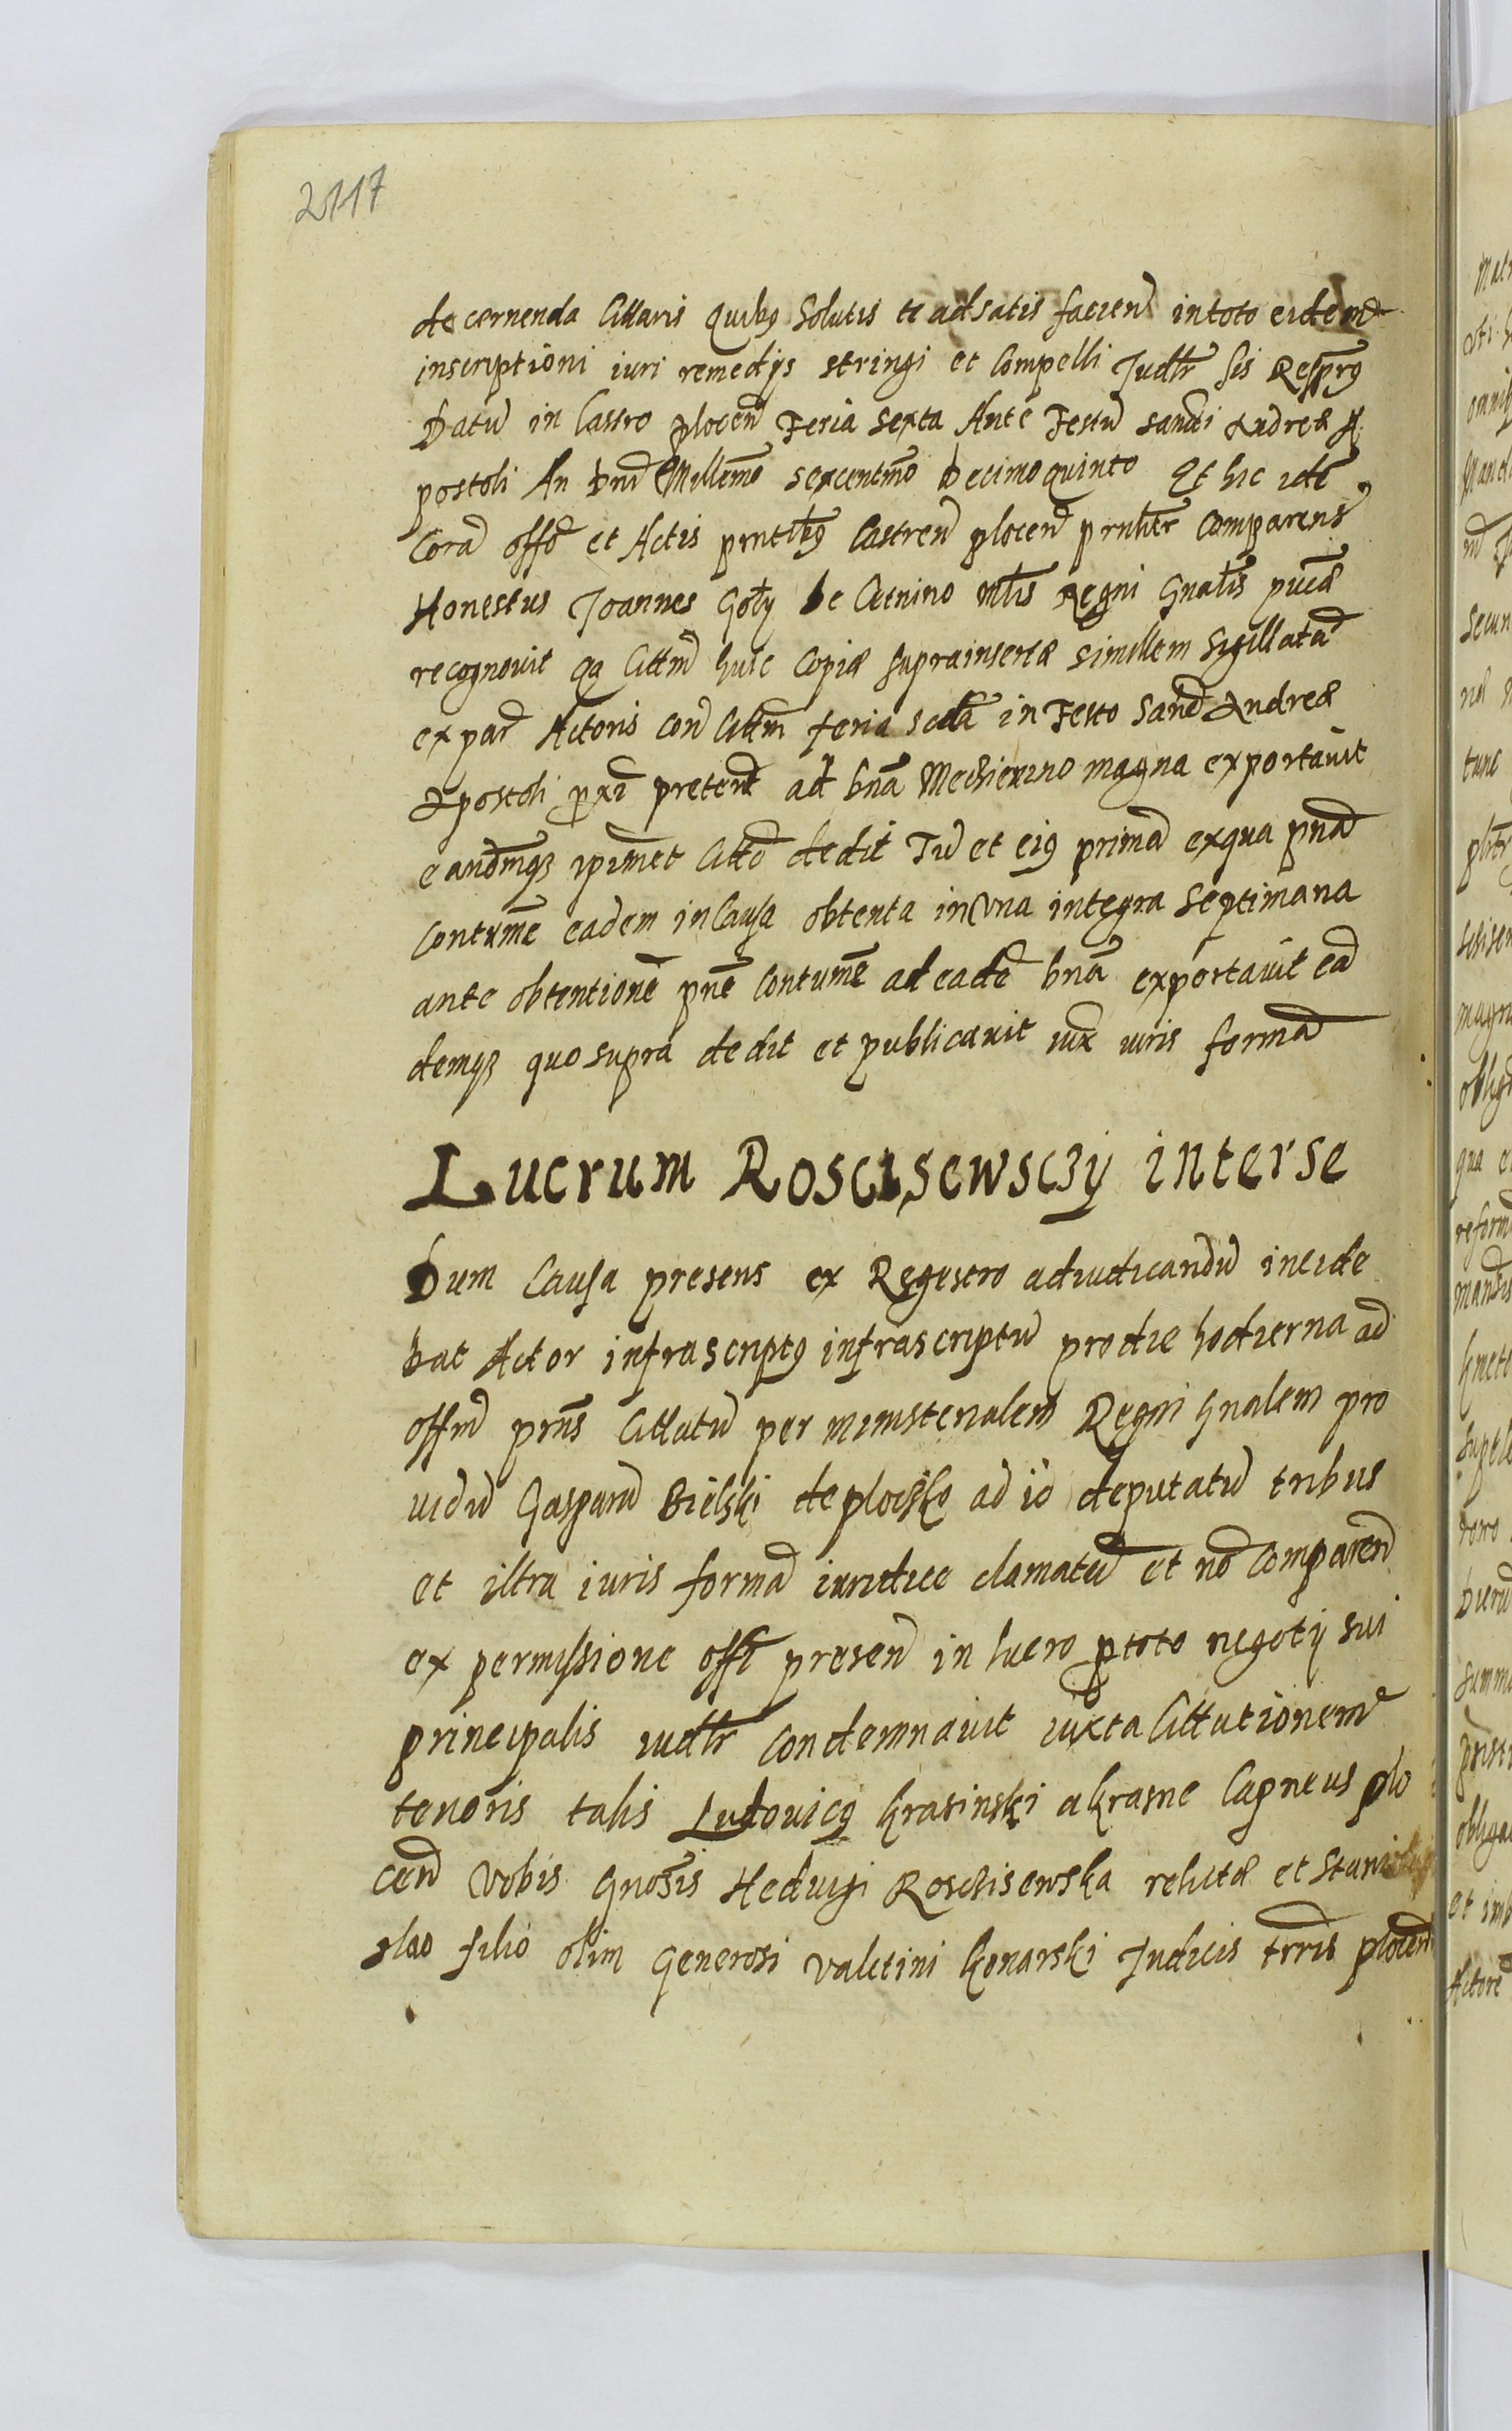 2117
decernenda Cittaris Quibg Solutis te adsatis faciend in toto eidem
inscriptioni iuri remedijs stringi et Compelli Judlr sis Respurg
Datu in Castro plocen Feria sexta Ante Festu sancti Andreæ A
postoli An Dni Millemo sexcentmo Decimoquinto Et hic idē
Corā offo et Actis pntibg Castren plocen prnlter Comparens
Honestus Joannes Goły de Cetnino mlis Regni Gnalis pucā
recognouit qa Cittm huic Copiæ suprainsertæ similem Sigillatā
ex par Actoris con Cittm feria scda in Festo Sanc Andreæ
Apostoli pxi preterit ad bnā Mechierzino magna exportauit
eandmqz ipimet Citto dedit Tu et eig primā exqua pnā
Contume eadem in Causa obtenta in una integra septimana
ante obtentionē pne Contume ad eadē bnā exportauit eā
demqz quo supra dedit et publicauit iux iuris formā
Lucrum Roscisewsczÿ interse
Dum Causa presens ex Regestro adiudicandū incide
bat Actor infrascriptg infrascriptū prodie hodierna ad
offm prns Cittatū per ministerialem Regni Gnalem pro
uidū Gasparū Bielski de plocsko ad id deputatū tribus
et iltra iuris formā iuridice clamatū et nō Comparen
ex permissione offi presen in lucro ptoto negotij sui
principalis iudlr Condemnauit iuxta Cittationem
tenoris talis Ludouicg Krasinski a Krasne Capneus plo
cen Vobis Gnosis Heduigi Roschisewska relictæ et Stani
slao filio olim Generosi Valetini Konarski Judicis trris plocen